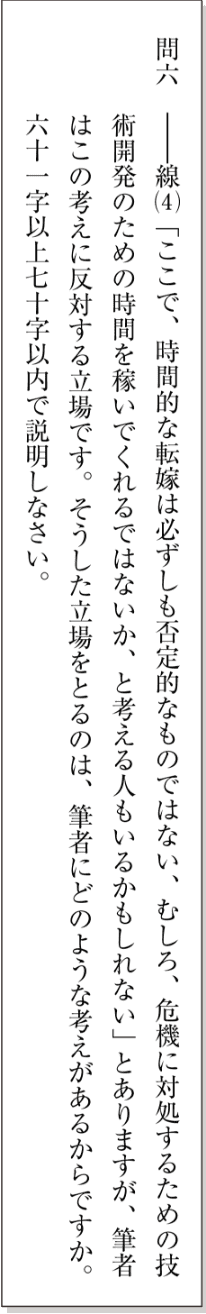 問六　――線⑷「ここで、時間的な転嫁は必ずしも否定的なものではない、むしろ、危機に対処するための技
術開発のための時間を稼いでくれるではないか、と考える人もいるかもしれない」とありますが、筆者
はこの考えに反対する立場です。そうした立場をとるのは、筆者にどのような考えがあるからですか。
六十一字以上七十字以内で説明しなさい。